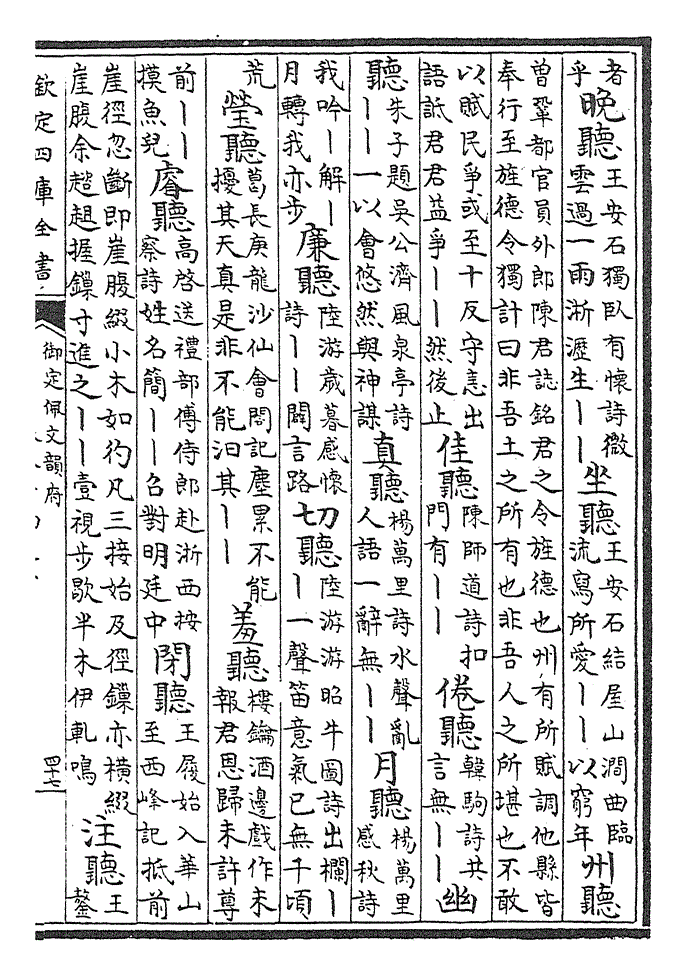 者乎晚聽王安石獨臥有懷詩微雲過一雨淅瀝生丨丨坐聽王安石結屋山澗曲臨流寫所愛丨丨以窮年州聽
曾鞏都官員外郎陳君誌銘君之令旌德也州有所賦調他縣皆奉行至旌德令獨計曰非吾土之所有也非吾人之所堪也不敢
以賦民爭或至十反守恚出語詆君君益爭丨丨然後止佳聽陳師道詩扣門有丨丨倦聽韓駒詩共言無丨丨幽
聽朱子題吳公濟風泉亭詩丨丨一以會悠然與神謀真聽楊萬里詩水聲亂人語一辭無丨丨月聽楊萬里感秋詩
我吟丨解丨月轉我亦步廉聽陸游歲暮感懷詩丨丨闢言路切聽陸游游昭牛圖詩出欄丨丨一聲笛意氣已無千頃
荒瑩聽葛長庚龍沙仙會閣記塵累不能擾其天真是非不能汩其丨丨羞聽樓鑰酒邊戲作未報君恩歸未許尊
前丨丨摸魚兒睿聽高啓送禮部傅侍郎赴浙西按察詩姓名簡丨丨召對明廷中閉聽王履始入華山至西峰記抵前
崖徑忽斷即崖腹綴小木如彴凡三接始及徑鏁亦橫綴崖腹余趦趄握鏁寸進之丨丨壹視步歇半木伊軋鳴注聽王鏊
欽定四庫全書
御定佩文韻府
四十七